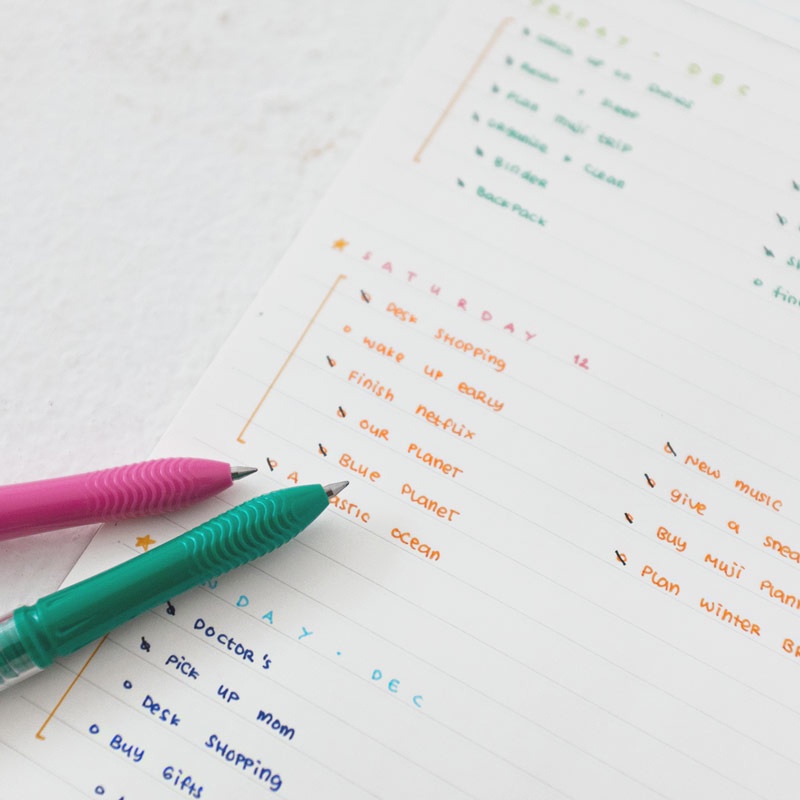 FRIDAY · DEC
Plan muji trip
organize + clean
Binder
Backpack
SATURDAY 12
Desk shopping
wake up early
Finish netflix
our planet
Blue planet
A ocean
New music
give a
Buy Muji
Plan winter
DAY · DEC
Doctor's
Pick up mom
Desk shopping
Buy Gifts